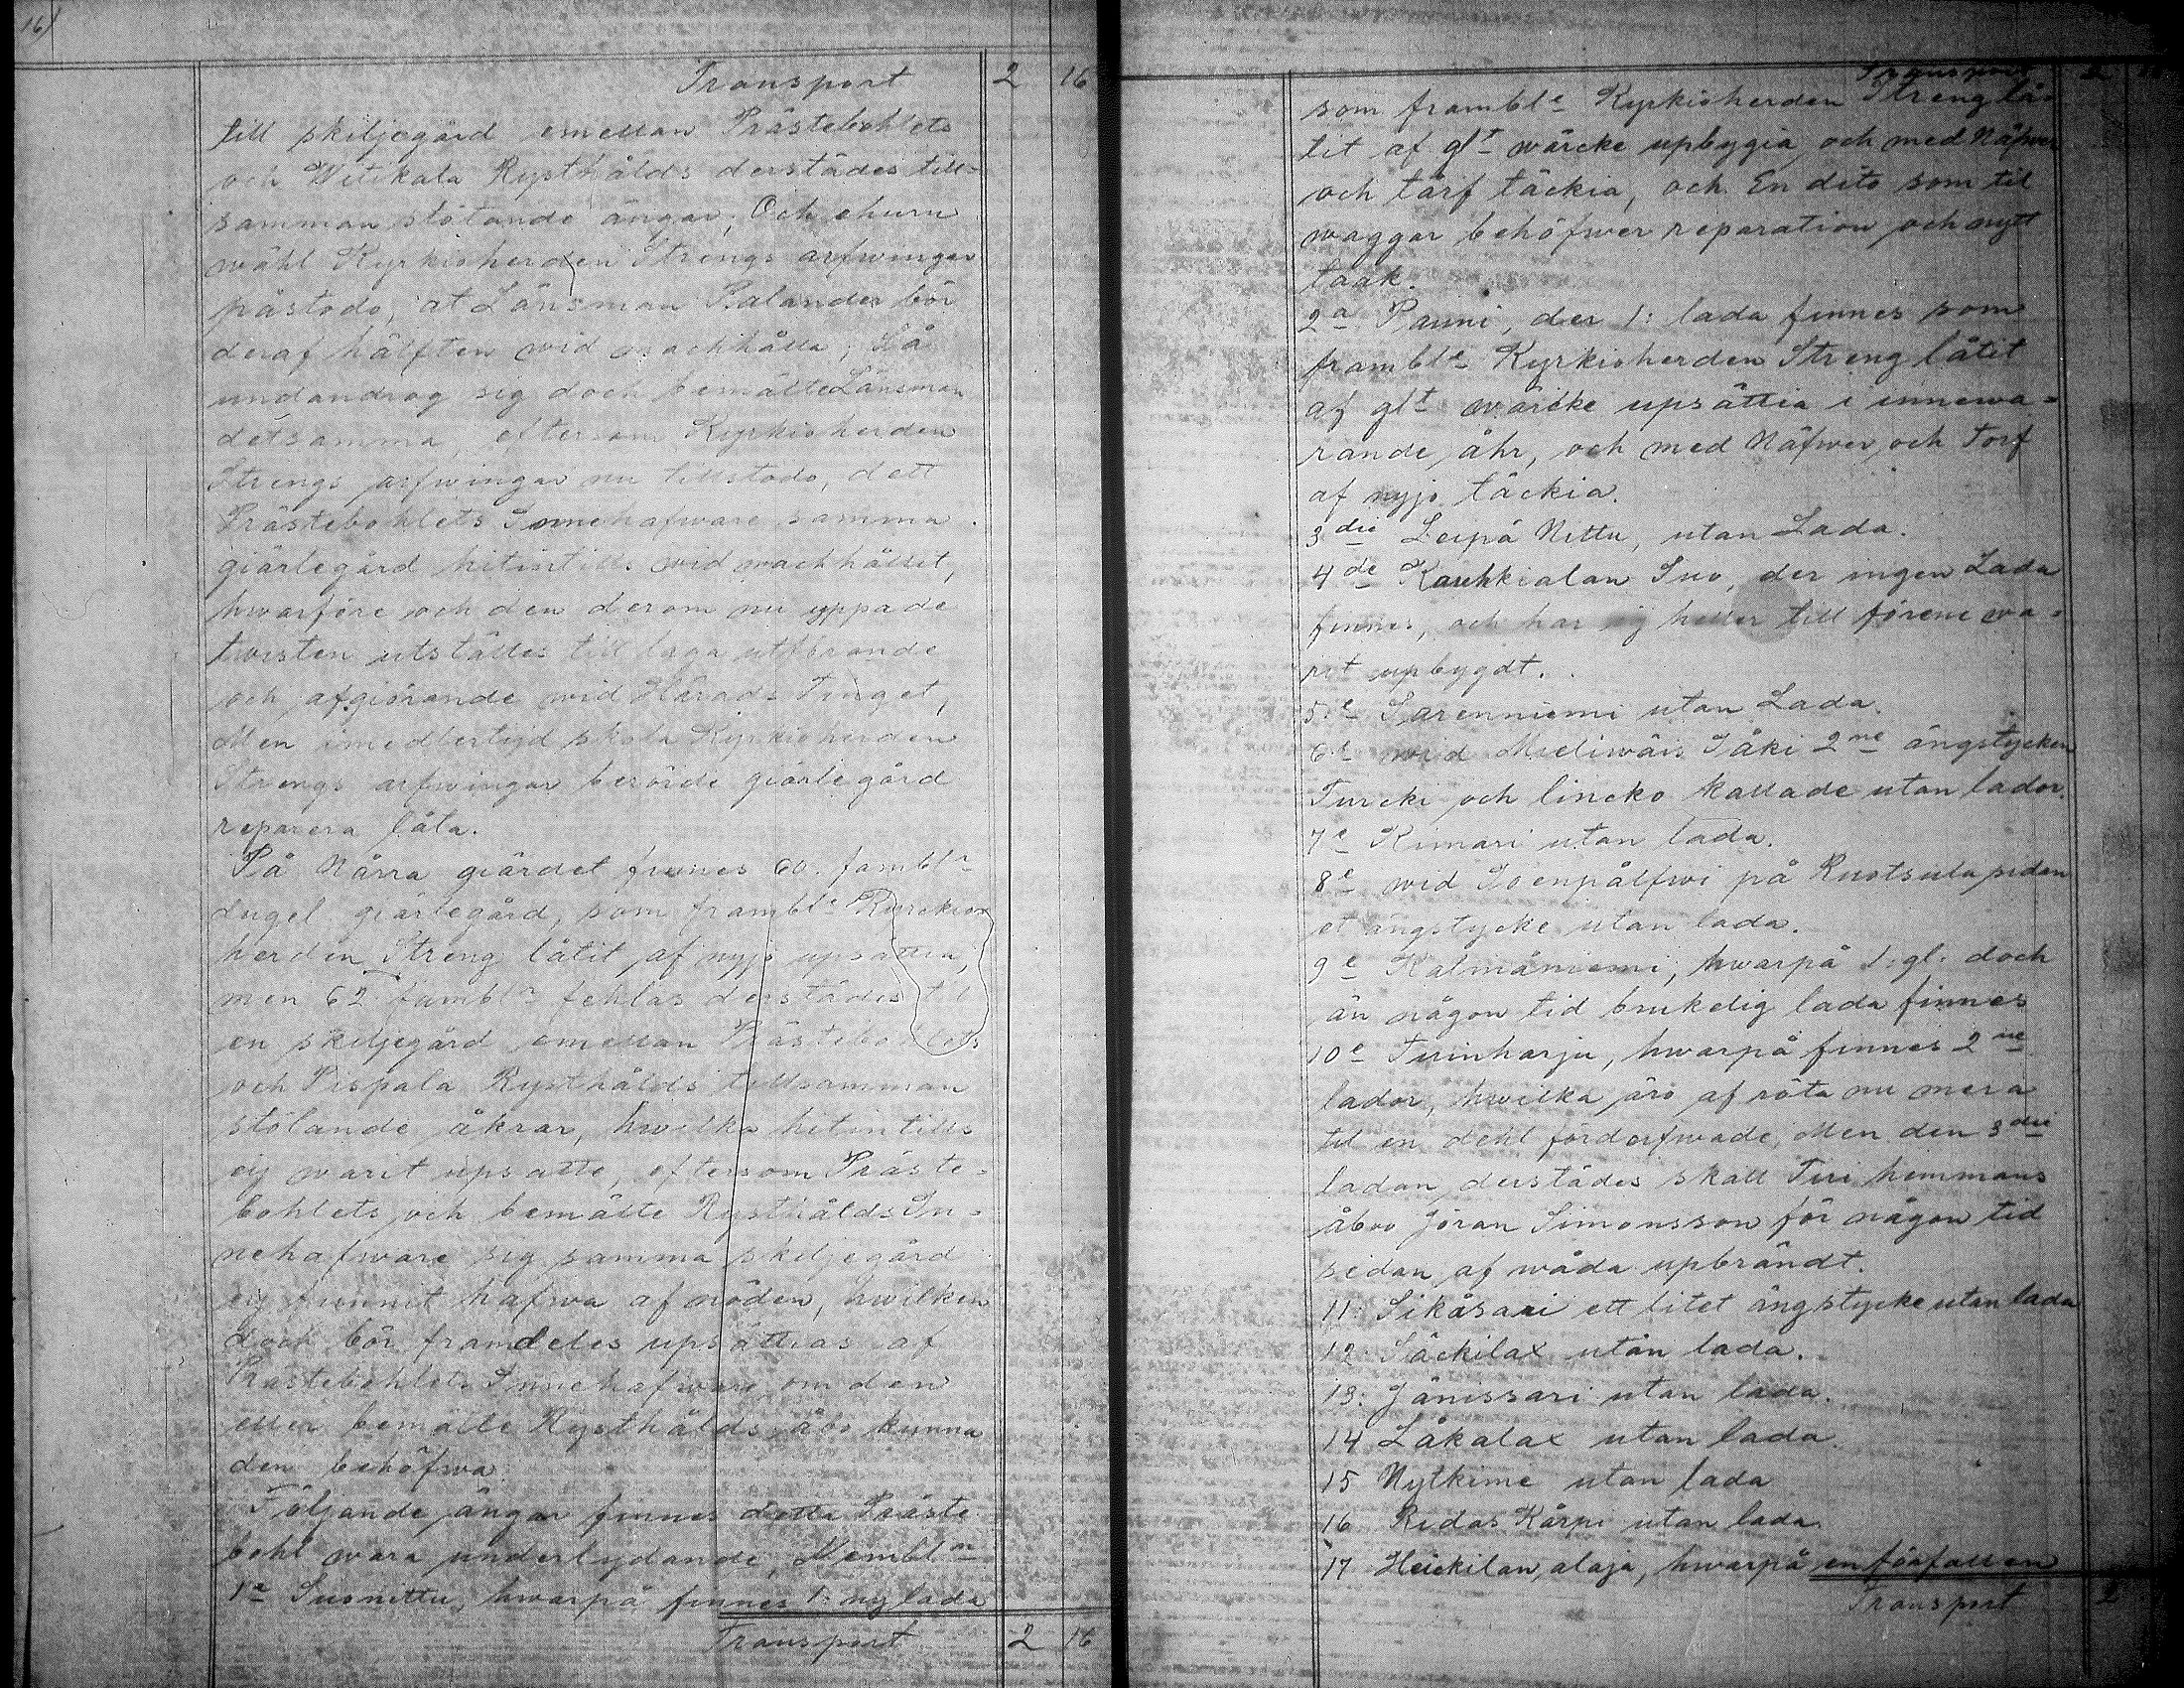 16)
Transport 2 16
till skiljegård emellan Prästebohlets
och Witikala Rysthålds derstädes till-
samman stötande ängar, Och ehuru
wähl Kyrkioherden Strengs arfwingar
påstodo, at Länsman Palander bör
deraf hälften wid machhålla, Så
undandrog sig doch bemälte Länsman
detsamma, eftersom Kyrkioherden
Strengs arfwingar nu tillstodo, dett
Prästebohlets Innehafware samma
giärlegård hitintill wid machhållit,
hwarföre och den derom nu yppade
twisten utställes till laga utförande
och afgiörande wid Härads Tinget,
Men imedlertijd skola Kyrkioherden
Strengs arfwingar berörde giärle gård
reparera låta.
På Norra giärdet finnes 60. fambl:r
dugel giärlegård, som frambl:e Kyrckio-
herden Streng låtit af nyjo upsättia,
men 62 fambl:r fehlas derstädes til
en skiljegård emellan Prästebohlets
och Pispala Rysthålds tillsamman
stötande åkrar, hwilka hitintills
eij warit upsatte, eftersom Präste-
bohlets och bemälte Rysthålds In-
nehafware sig samma skiljegård
eij funnit hafwa af nöden, hwilken
doch bör framdeles upsättias af
Prästebohlets Innehafware om den
eller bemälte Rysthålds åbo kunna
den behöfwa.
Följande ängar finnes detta Präste
bohl wara underlydande, Nembl:n
1:a Suonittu, hwarpå finnes 1: ny lada
Transport 2 16
Transport 2
som frambl:e Kyrkioherden Streng lå-
tit af gl:t wärcke upbygia och med Näfwer
och tårf täckia, och En dito som til
waggar behöfwer reparation och nytt
taak.
2:a Pauni, der 1: lada finnes som
frambl:e Kyrkioherden Streng låtit
af gl:t wärcke upsättia i innewa-
rande åhr, och med Näfwer och Torf
af nyjo täckia.
3:die Leipä Nittu, utan Lada.
4:de Kauhkialan Suo, der ingen Lada
finnes, och har ej heller till förene wa-
rit upbygdt.
5:e Sarenniemi utan Lada.
6:e wid Mieliwäis Jåki 2:ne ängstycken
Turcki och lincko kallade utan lador.
7:e Kimari utan lada.
8:e wid Joenpälfwi på Ruotsula sidan
et ängstycke utan lada.
9:e Kalmäniemi, hwarpå 1: gl: doch
än någon tid brukelig lada finnes
10:e Turinharju, hwarpå finnes 2:ne
lador, hwilka äro af röta nu mera
til en dehl förderfwade, Men den 3:die
ladan derstädes skall Turi hemmans
åboo Jöran Simonsson för någon tid
sedan af wåda upbrändt.
11: Sikåsaari ett litet ängstycke utan lada
12: Säckilax utan lada.
13: Jänissari utan lada.
14 Låkalax utan lada.
15 Nytkime utan lada
16 Ridas Kårpi utan lada.
17 Heickilan, alaja, hwarpå en förfallen
Transport 2